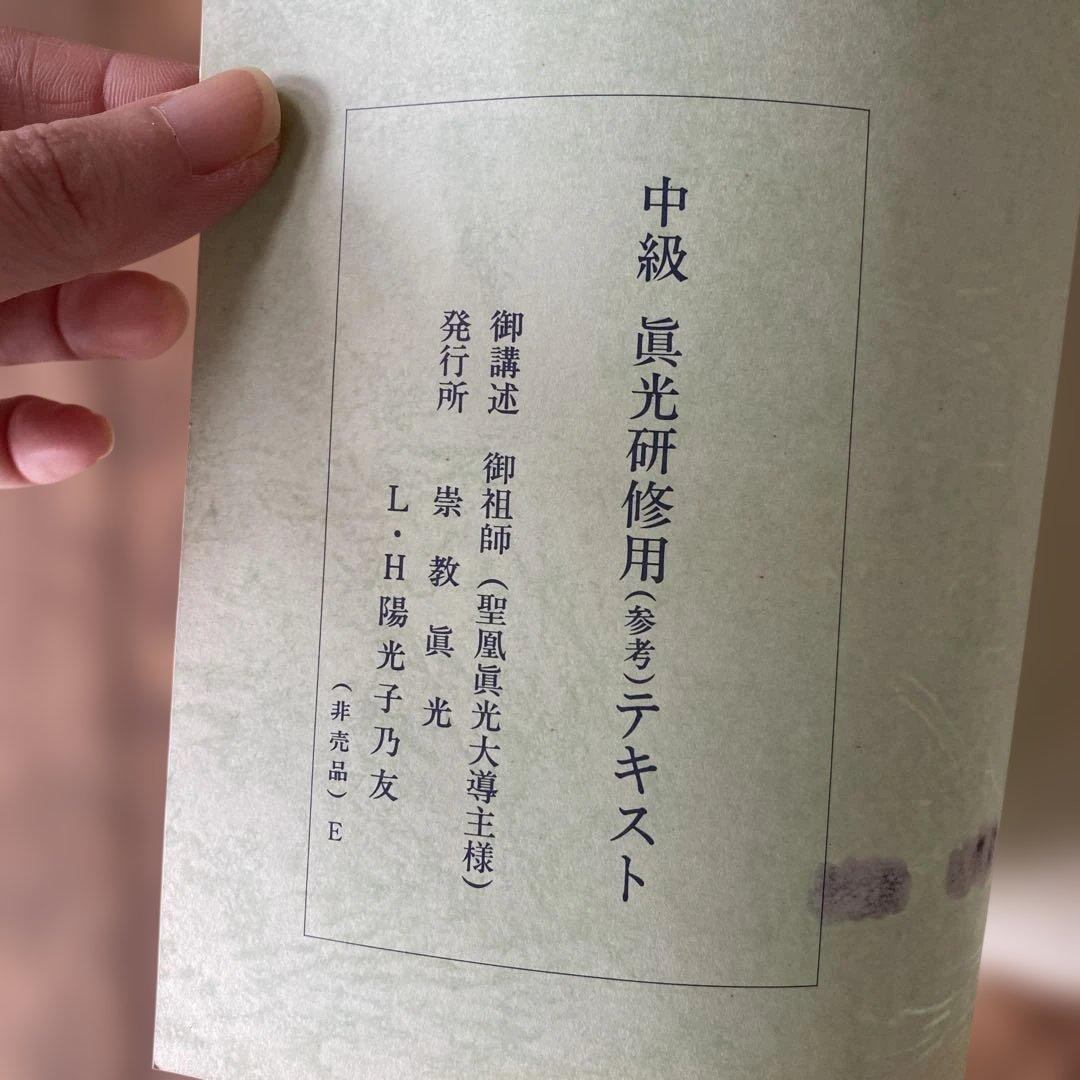 中級 眞光研修用(参考)テキスト
御講述 御祖師(聖凰眞光大導主様)
発行所 崇教眞光
L・H陽光子乃友
(非売品)E